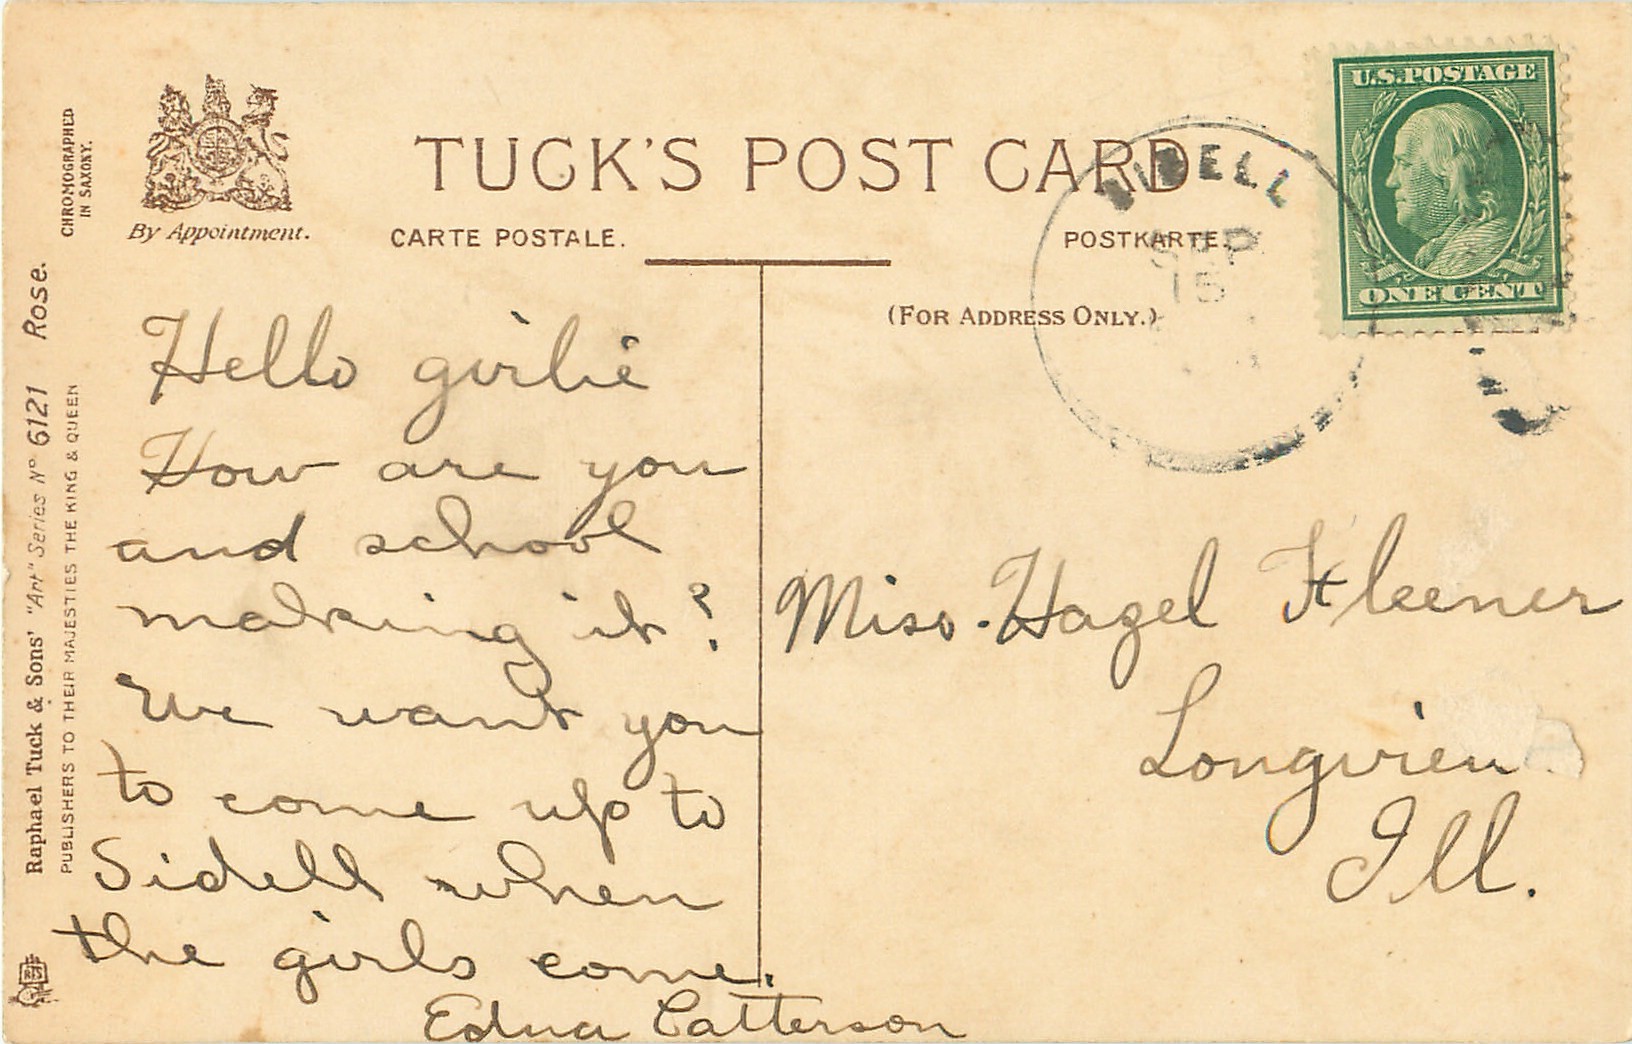 TUCK'S POST CARD
CARTE POSTALE.
POSTKARTE.
(FOR ADDRESS ONLY.)
By Appointment.
CHROMOGRAPHED
IN SAXONY.
Raphael Tuck & Sons' "Art" Series No 6121 Rose.
PUBLISHERS TO THEIR MAJESTIES THE KING & QUEEN
U.S.POSTAGE
ONE CENT
SIDELL
SEP
15
Hello girlie
How are you
and school
making it?
We want you
to come up to
Sidell when
the girls come.
Edna Catterson
Miss. Hazel Fleener
Longview
Ill.